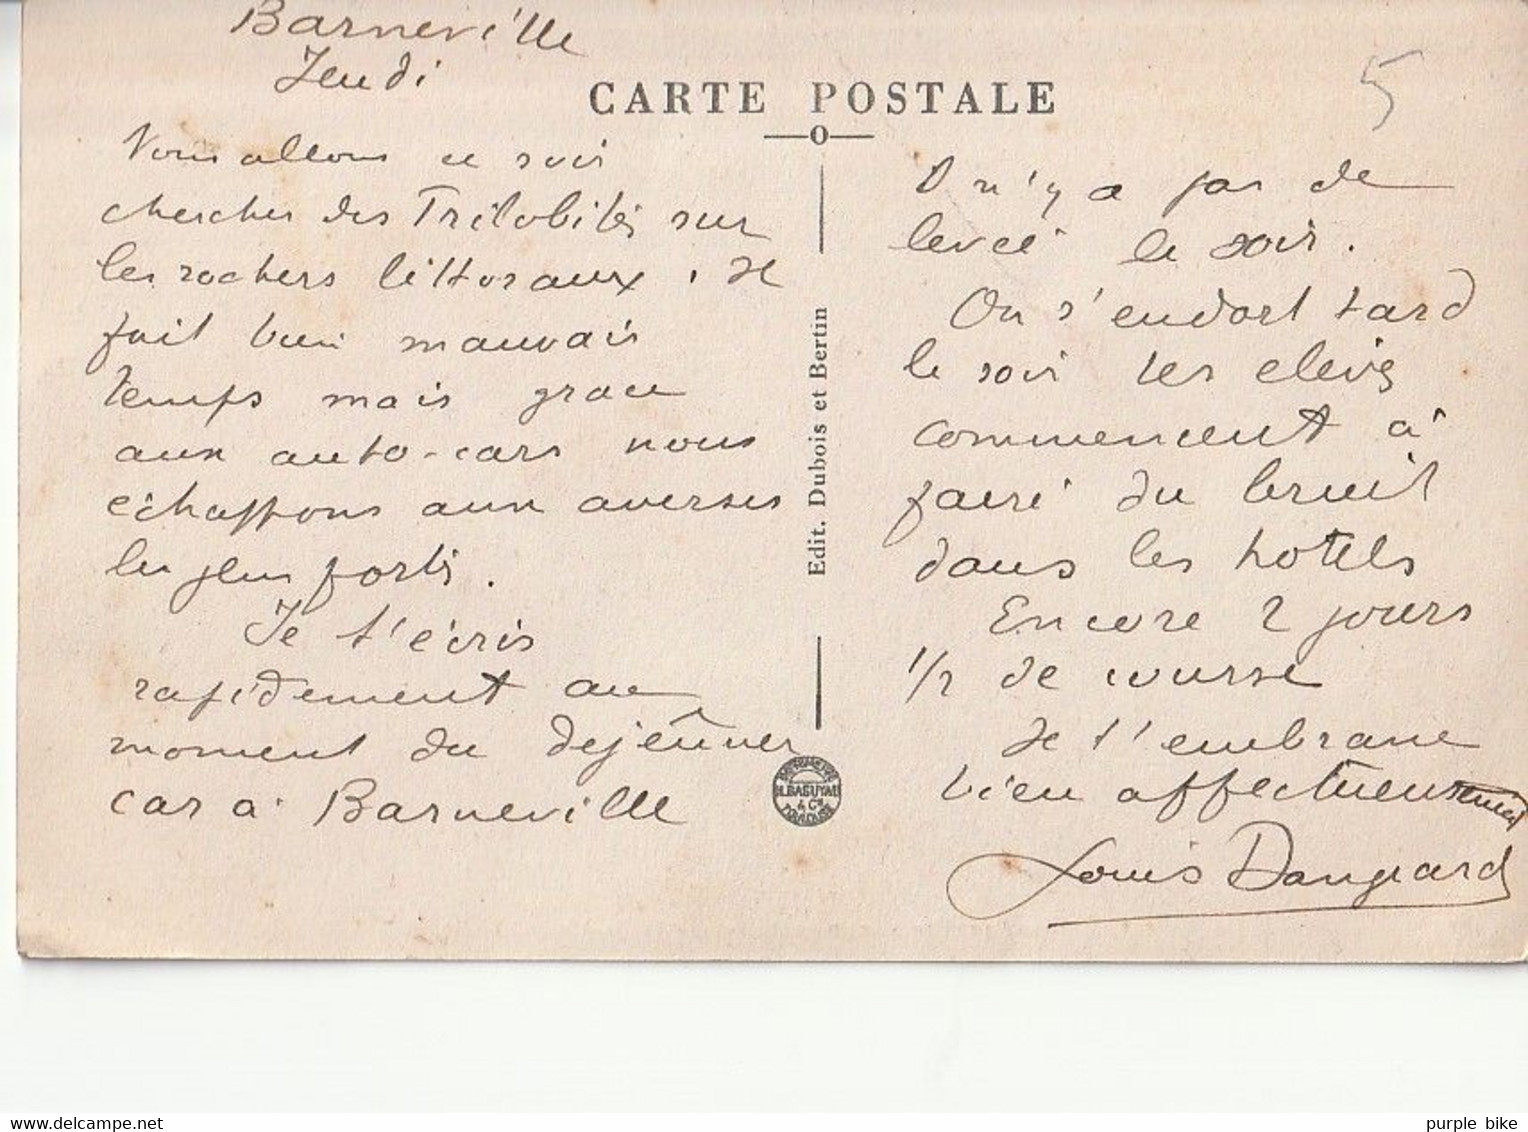 Barneville
Jeudi
CARTE POSTALE
5
Nous allons ce soir
chercher des Trilobites sur
les rochers littoraux. Il
fait bien mauvais
temps mais grace
aux auto-cars nous
échappons aux averses
les plus fortes.
Je t'écris
rapidement au
moment du dejeûner
car à Barneville
Il n'y a pas de
levée le soir.
On s'endort tard
le soir les eleves
commencent à
faire du bruit
dans les hotels
Encore 2 jours
1/2 de course
Je t'embrasse
bien affectueusement
Louis Dangeard
Edit. Dubois et Bertin
TOULOUSE
purple bike